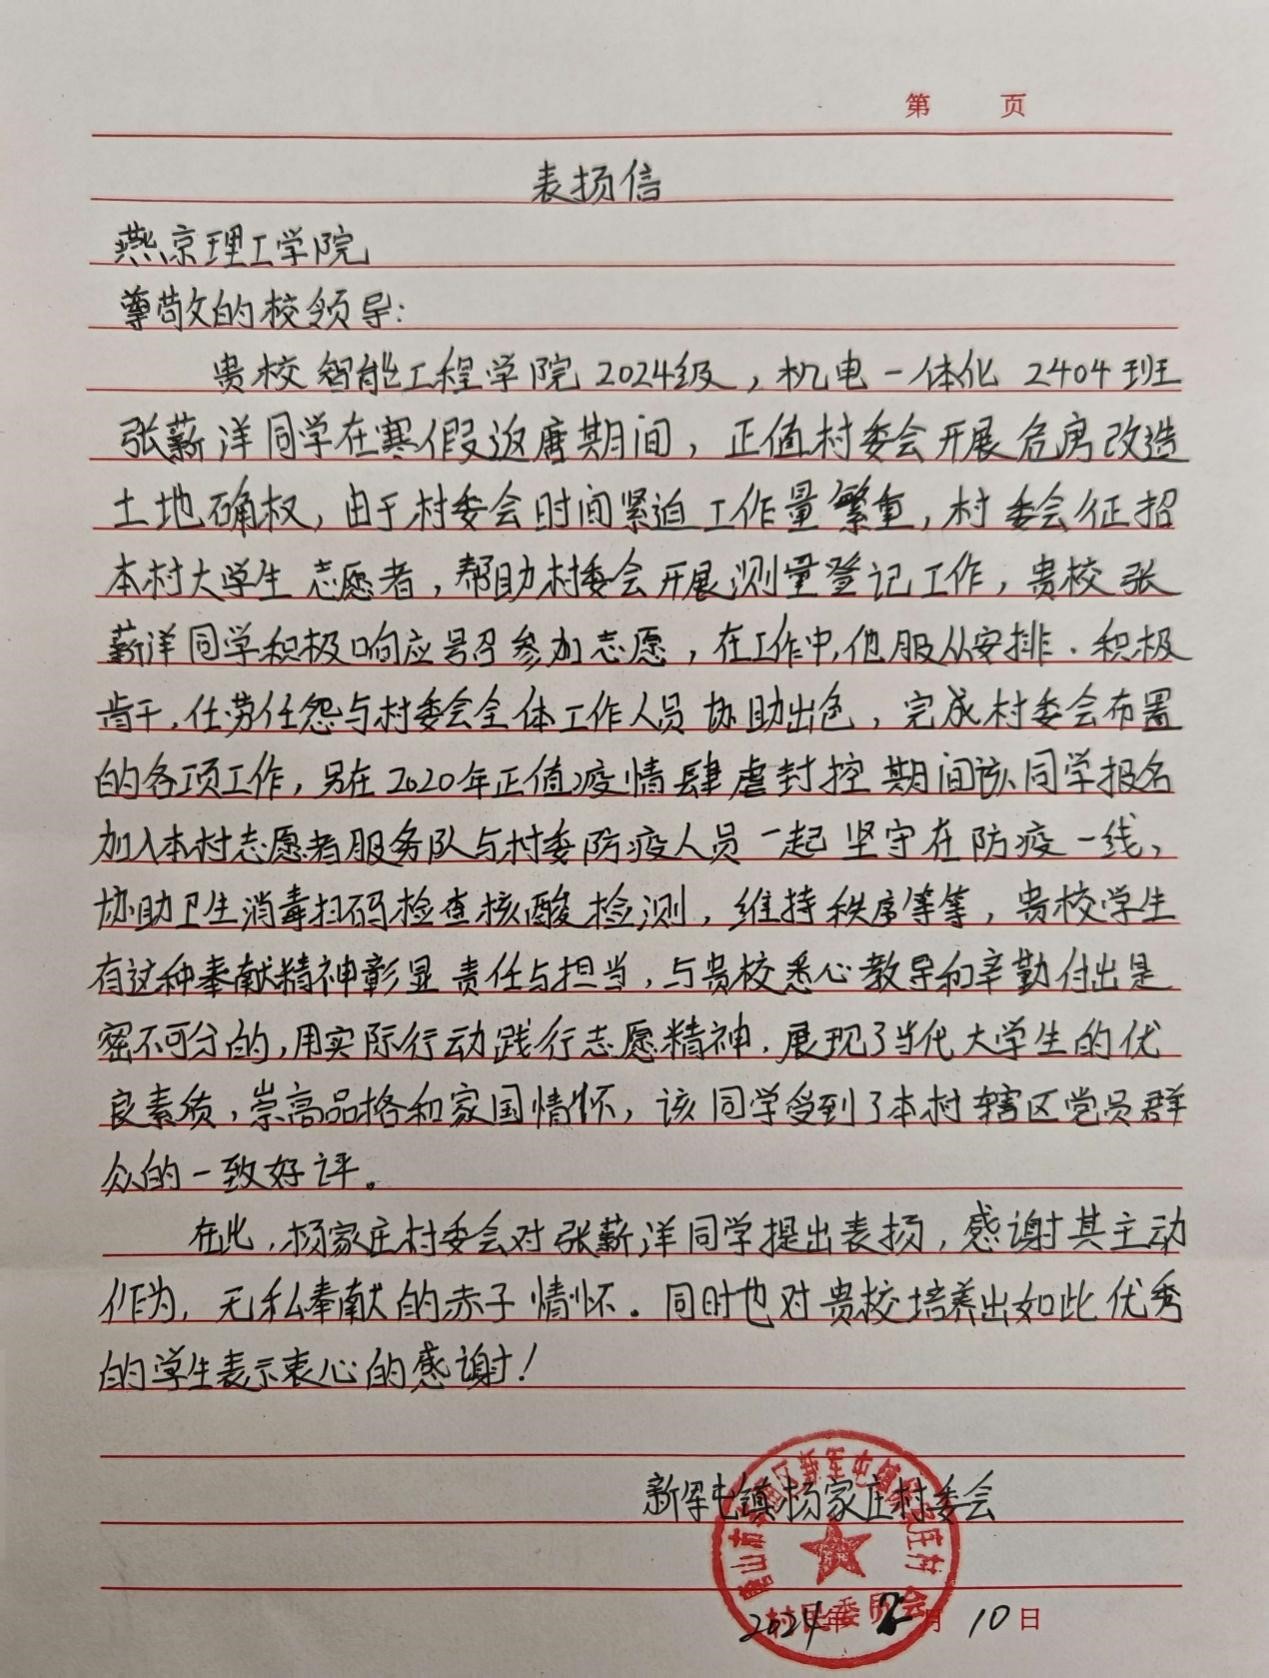 第 页
表扬信
燕京理工学院
尊敬的校领导:
贵校智能工程学院2024级,机电一体化 2404班
张薪洋同学在寒假返唐期间,正值村委会开展危房改造
土地确权,由于村委会时间紧迫工作量繁重,村委会征招
本村大学生志愿者,帮助村委会开展测量登记工作,贵校张
薪洋同学积极响应号召参加志愿,在工作中,他服从安排.积极
肯干.任劳任怨与村委会全体工作人员协助出色,完成村委会布置
的各项工作,另在2020年正值疫情肆虐封控期间该同学报名
加入本村志愿者服务队与村委防疫人员一起坚守在防疫一线,
协助卫生消毒扫码检查核酸检测,维持秩序等等,贵校学生
有这种奉献精神彰显责任与担当,与贵校悉心教导和辛勤付出是
密不可分的,用实际行动践行志愿精神.展现了当代大学生的优
良素质,崇高品格和家国情怀,该同学受到了本村辖区党员群
众的一致好评。
在此,杨家庄村委会对张薪洋同学提出表扬,感谢其主动
作为,无私奉献的赤子情怀。同时也对贵校培养出如此优秀
的学生表示衷心的感谢!
新军屯镇杨家庄村委会
唐山市丰润区新军屯镇杨家庄村
村民委员会
2024年2月10日